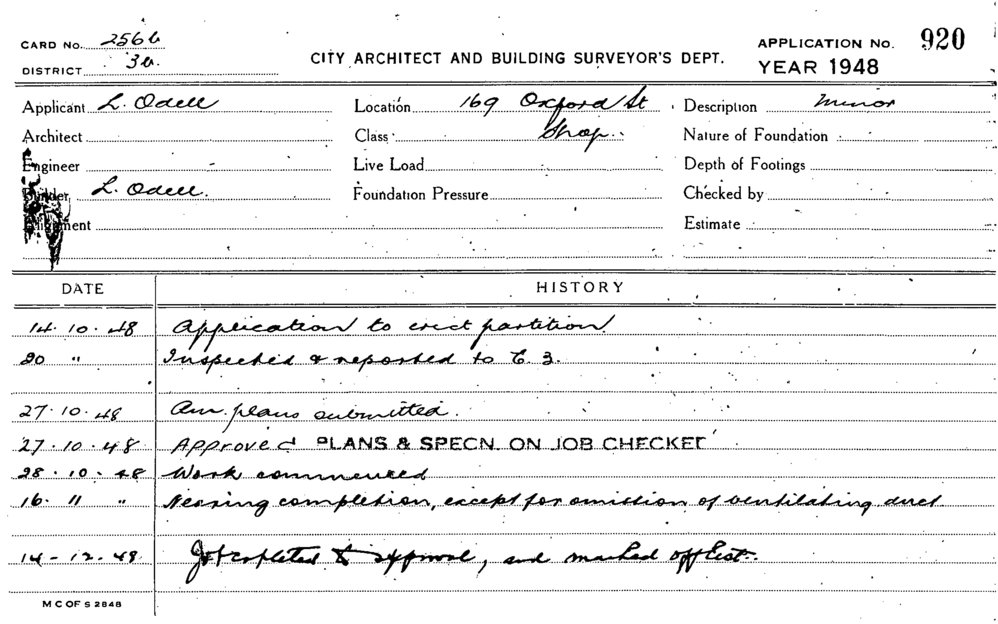 CARD No. 256b
DISTRICT 3b.
CITY ARCHITECT AND BUILDING SURVEYOR'S DEPT.
APPLICATION No. 920
YEAR 1948
Applicant L. Odell Location 169 Oxford St Description Minor
Architect Class Shop. Nature of Foundation
Engineer Live Load Depth of Footings
Builder L. Odell. Foundation Pressure Checked by
Alignment Estimate
DATE HISTORY
14. 10. 48 Application to erect partition
20 " Inspected & reported to C. 3.
27. 10. 48 Am. plans submitted.
27. 10. 48 Approved PLANS & SPECN. ON JOB CHECKED
28. 10. 48 Work commenced
16. 11 " Nearing completion, except for omission of ventilating duct
14 - 12. 48 Job completed to approval, and marked off list.
M C OF S 2848